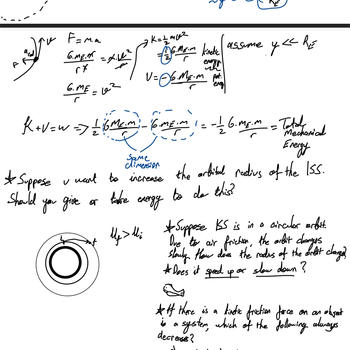 F = ma
G.M_E.m / r² = m v²/r
G.M_E / r = v²
K = 1/2 mv²
= 1/2 G.M_E.m / r
U = - G.M_E.m / r
assume y << R_E
K+U=W => 1/2 G.M_E.m / r - G.M_E.m / r = -1/2 G.M_E.m / r = Total Mechanical Energy
Same dimension
* Suppose u want to increase the orbital radius of the ISS.
Should you give or take energy to do this?
U_f > U_i
* Suppose ISS is in a circular orbit
Due to air friction, the orbit changes
slowly. How does the radius of the orbit change?
* Does it speed up or slow down?
* If there is a kinetic friction force on an object
in a system, which of the following always
decrease?